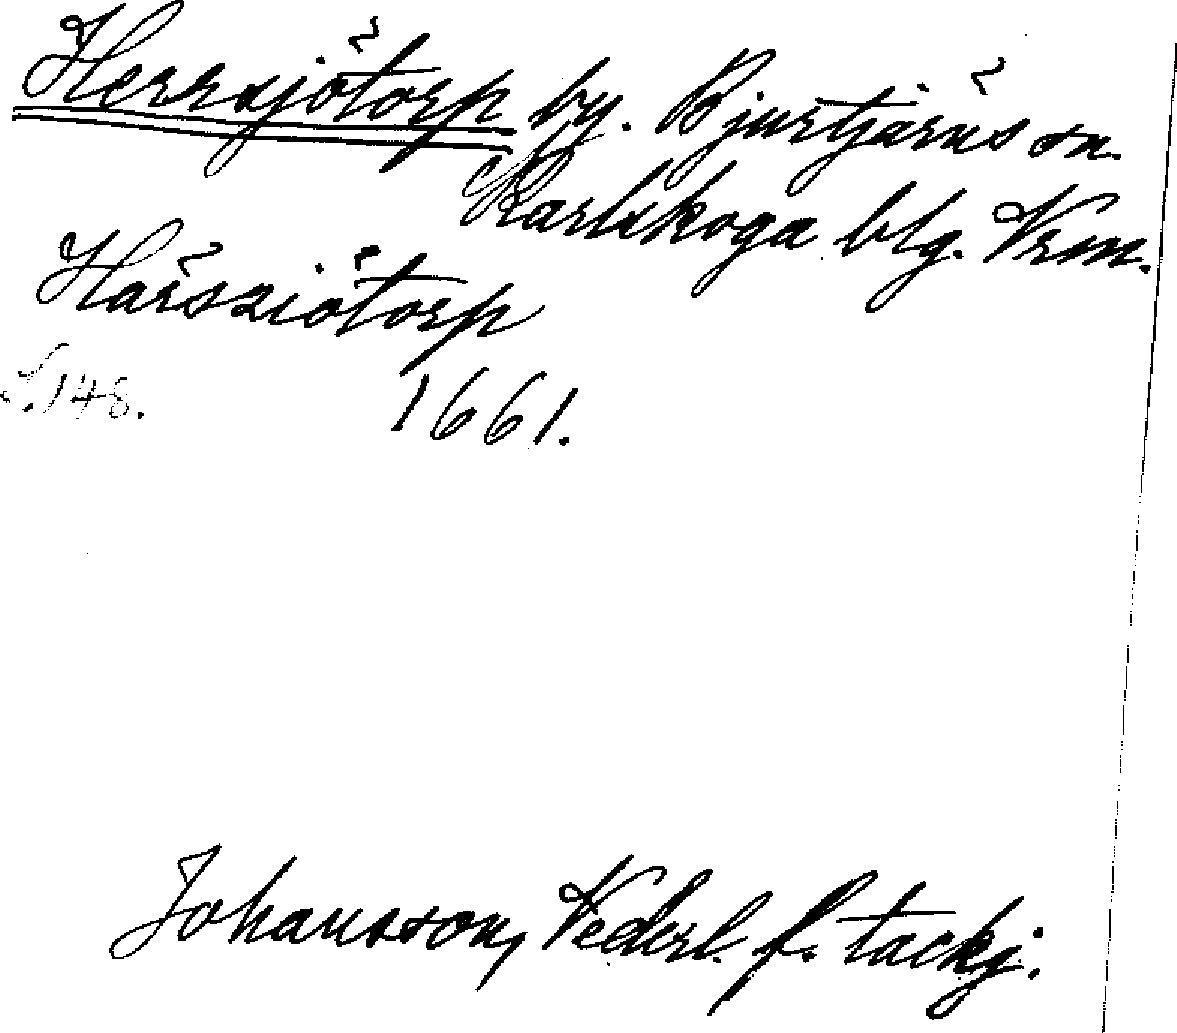 Herrsjötorp by. Bjurtjärns sn.
Karlskoga blg. Vrm.
Härsziötorp
S. 148. 1661.
Johansson, Vederl. f. tackj.